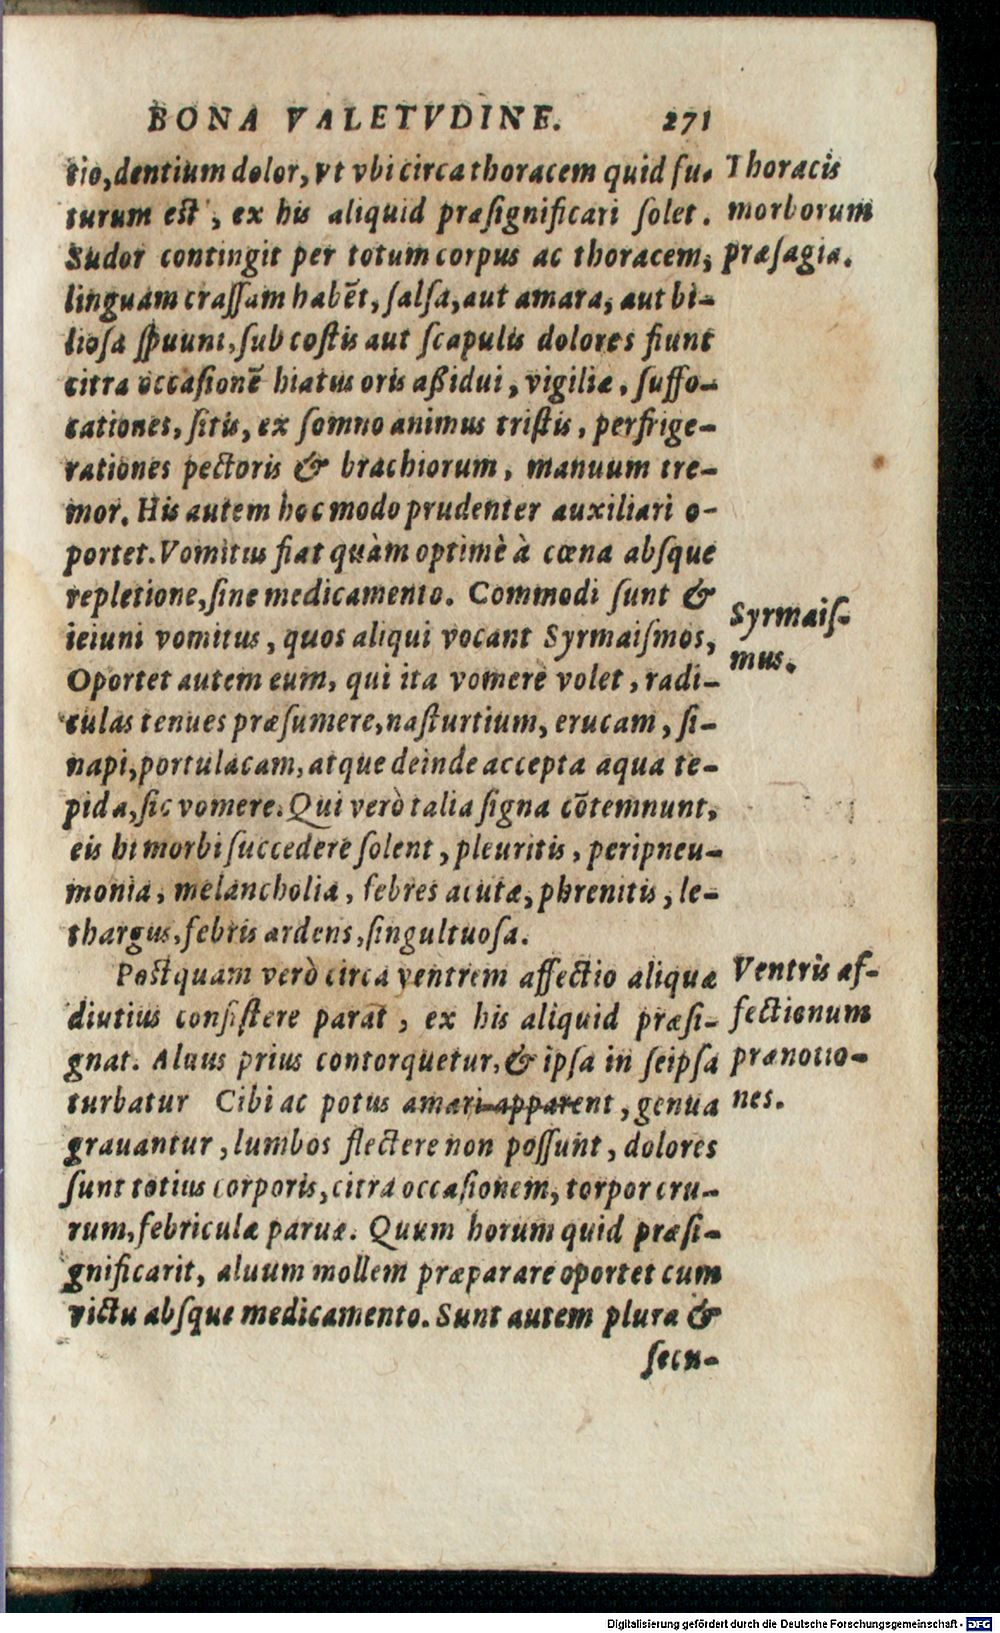 BONA VALETVDINE. 271
tio, dentium dolor, vt vbi circa thoracem quid fu-
turum est, ex his aliquid præsignificari solet.
Sudor contingit per totum corpus ac thoracem,
linguam crassam habēt, salsa, aut amara, aut bi-
liosa spuunt, sub costis aut scapulis dolores fiunt
citra occasionē hiatus oris aßidui, vigiliæ, suffo-
cationes, sitis, ex somno animus tristis, perfrige-
rationes pectoris & brachiorum, manuum tre-
mor. His autem hoc modo prudenter auxiliari o-
portet. Vomitus fiat quàm optimè à cœna absque
repletione, sine medicamento. Commodi sunt &
ieiuni vomitus, quos aliqui vocant Syrmaismos,
Oportet autem eum, qui ita vomere volet, radi-
culas tenues præsumere, nasturtium, erucam, si-
napi, portulacam, atque deinde accepta aqua te-
pida, sic vomere. Qui verò talia signa cōtemnunt,
eis hi morbi succedere solent, pleuritis, peripneu-
monia, melancholia, febres acutæ, phrenitis, le-
thargus, febris ardens, singultuosa.
Postquam verò circa ventrem affectio aliqua
diutius consistere parat, ex his aliquid præsi-
gnat. Aluus prius contorquetur, & ipsa in seipsa
turbatur Cibi ac potus amari apparent, genua
grauantur, lumbos flectere non possunt, dolores
sunt totius corporis, citra occasionem, torpor cru-
rum, febriculæ paruæ. Quum horum quid præsi-
gnificarit, aluum mollem præparare oportet cum
victu absque medicamento. Sunt autem plura &
secu-
Thoracis
morborum
præsagia.
Syrmais-
mus.
Ventris af-
fectionum
prænotio-
nes.
Digitalisierung gefördert durch die Deutsche Forschungsgemeinschaft - DFG